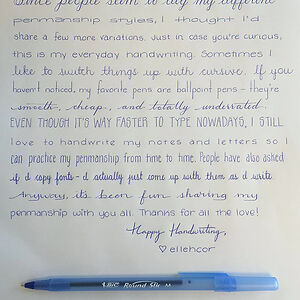 Since people seem to dig my different
penmanship styles, I thought I'd
share a few more variations. Just in case you're curious,
this is my everyday handwriting. Sometimes I
like to switch things up with cursive. If you
haven't noticed, my favorite pens are ballpoint pens - they're
smooth, cheap, and totally underrated.
EVEN THOUGH IT'S WAY FASTER TO TYPE NOWADAYS, I STILL
love to handwrite my notes and letters so I
can practice my penmanship from time to time. People have also asked
if I copy fonts - I actually just come up with them as I write.
Anyway, it's been fun sharing my
penmanship with you all. Thanks for all the love!
Happy Handwriting,
♡ ellehcor
BIC Round Stic M